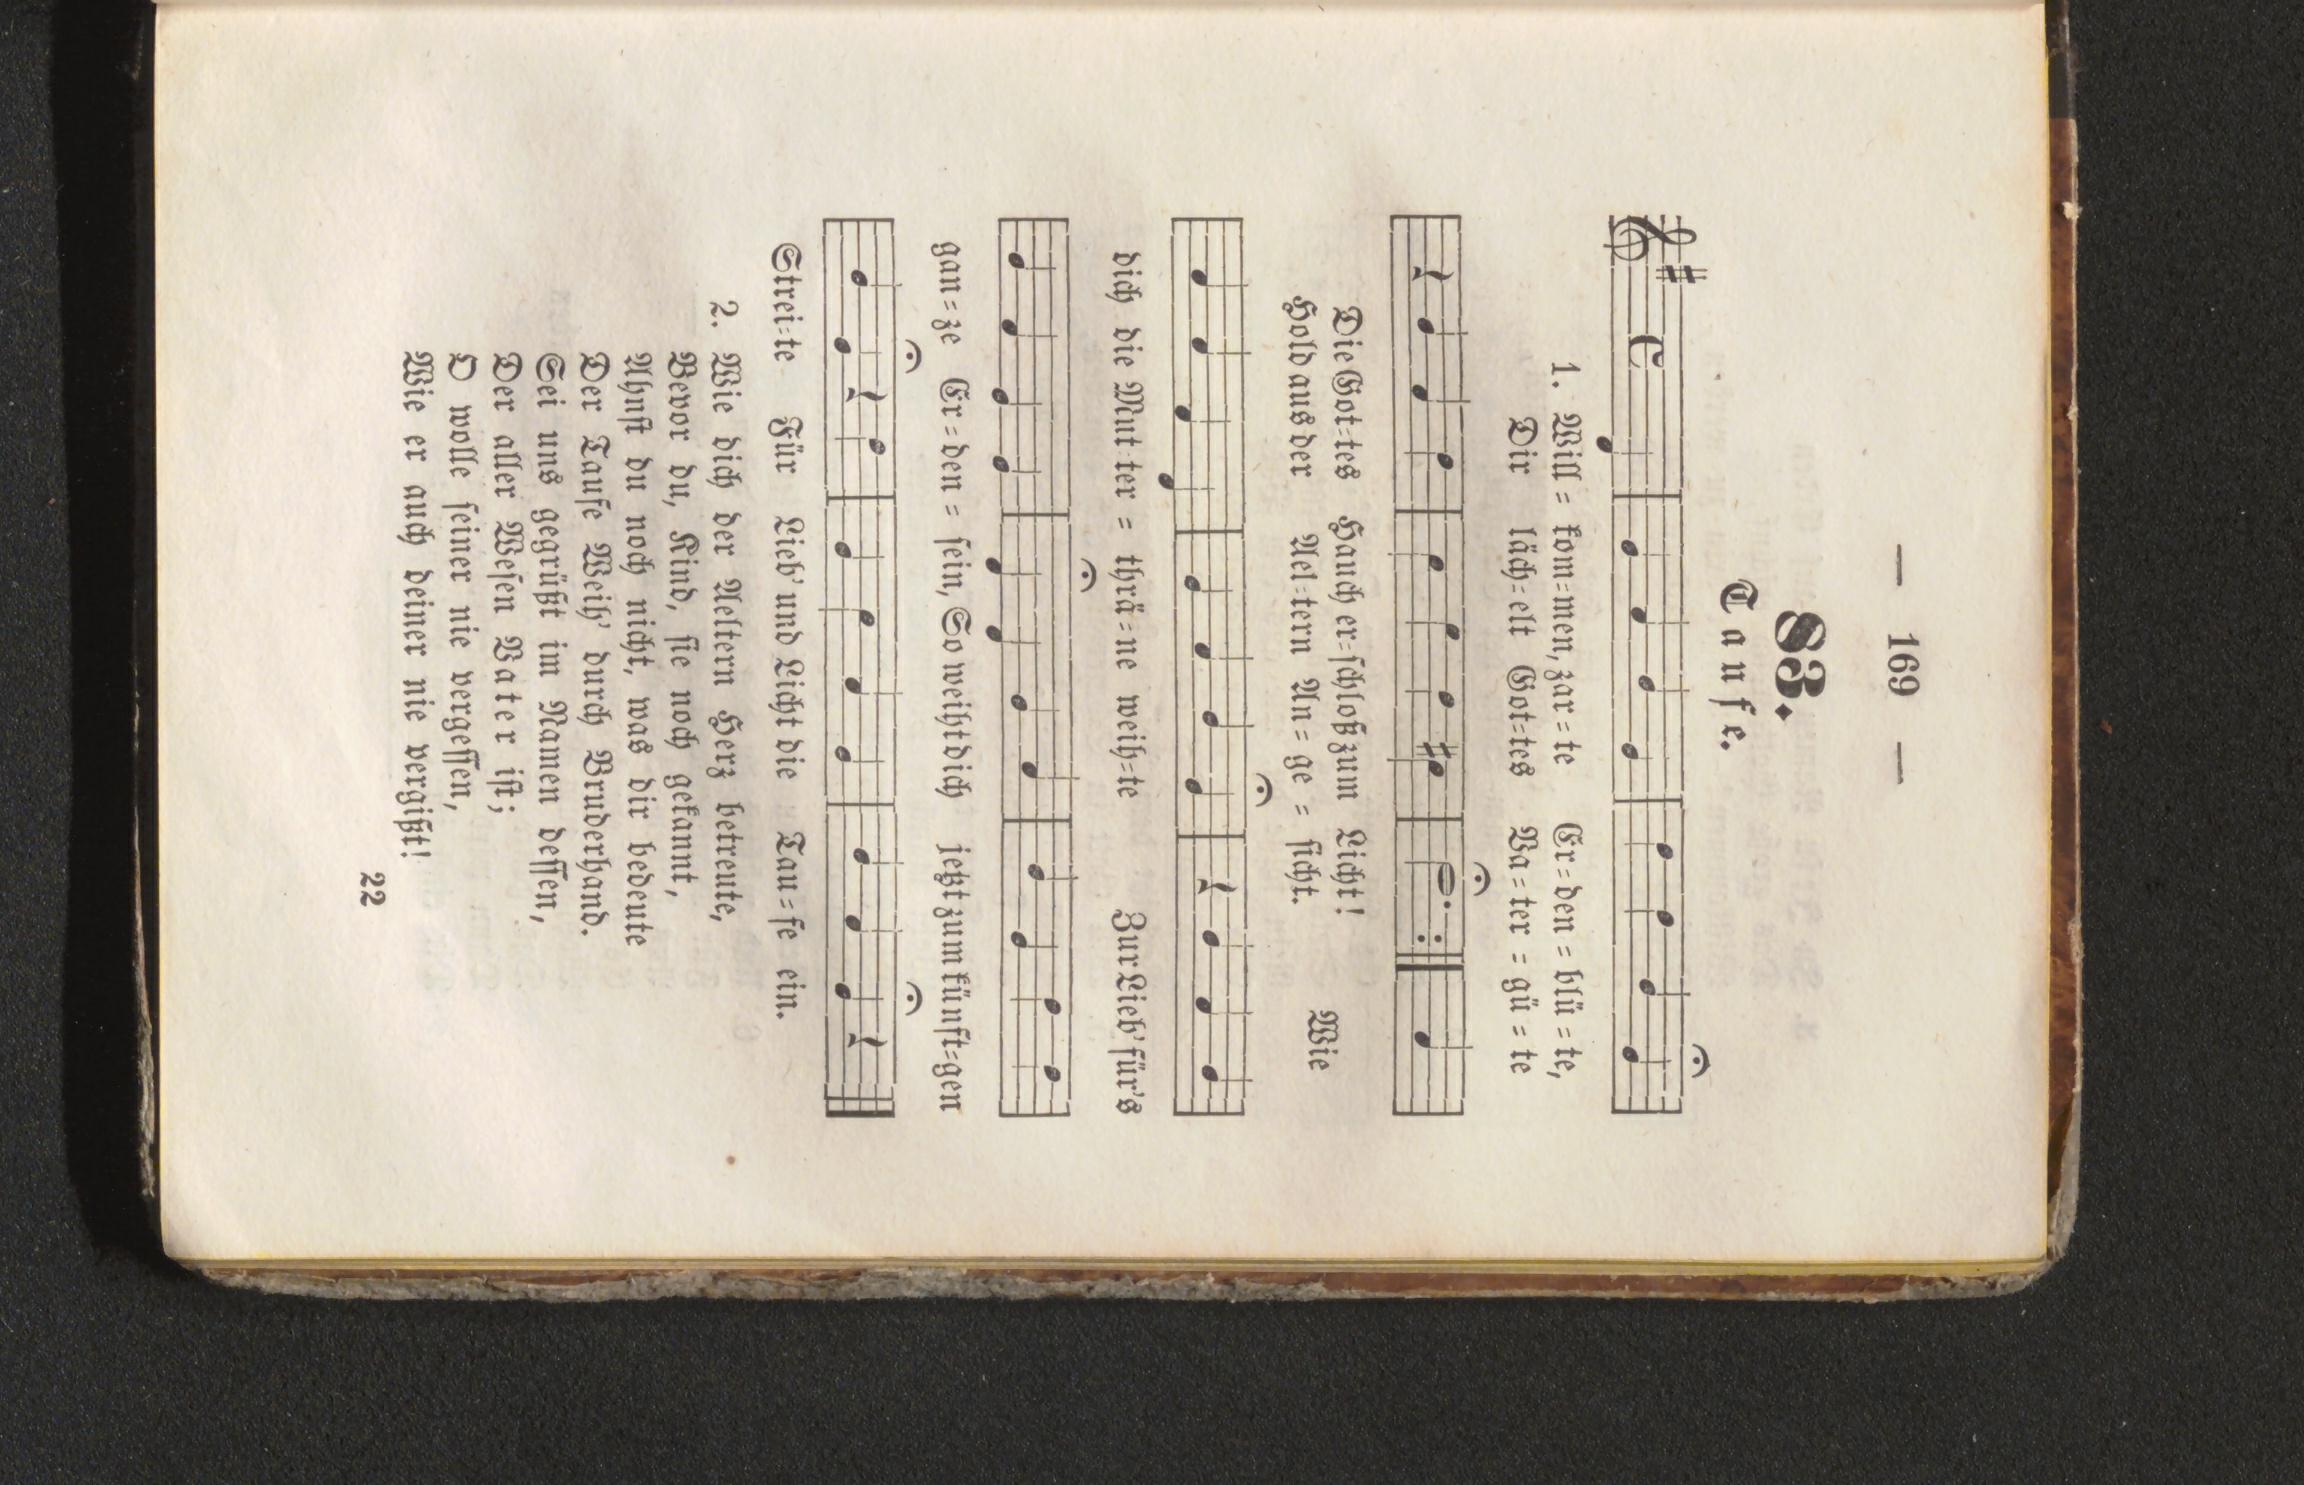 — 169 —
83.
Taufe.
1. Will = kom=men, zar=te Er=den = blü = te,
Dir läch=elt Got=tes Va=ter = gü = te
Die Got=tes Hauch er=schloß zum Licht! Wie
Hold aus der Ael=tern An = ge = sicht.
dich die Mut=ter = thrä=ne weih=te Zur Lieb' für's
gan=ze Er=den = sein, So weiht dich jetzt zum künft=gen
Strei=te Für Lieb' und Licht die Tau = fe ein.
2. Wie dich der Aeltern Herz betreute,
Bevor du, Kind, sie noch gekannt,
Ahnst du noch nicht, was dir bedeute
Der Taufe Weih' durch Bruderhand.
Sei uns gegrüßt im Namen dessen,
Der aller Wesen Vater ist;
O wolle seiner nie vergessen,
Wie er auch deiner nie vergißt!
22